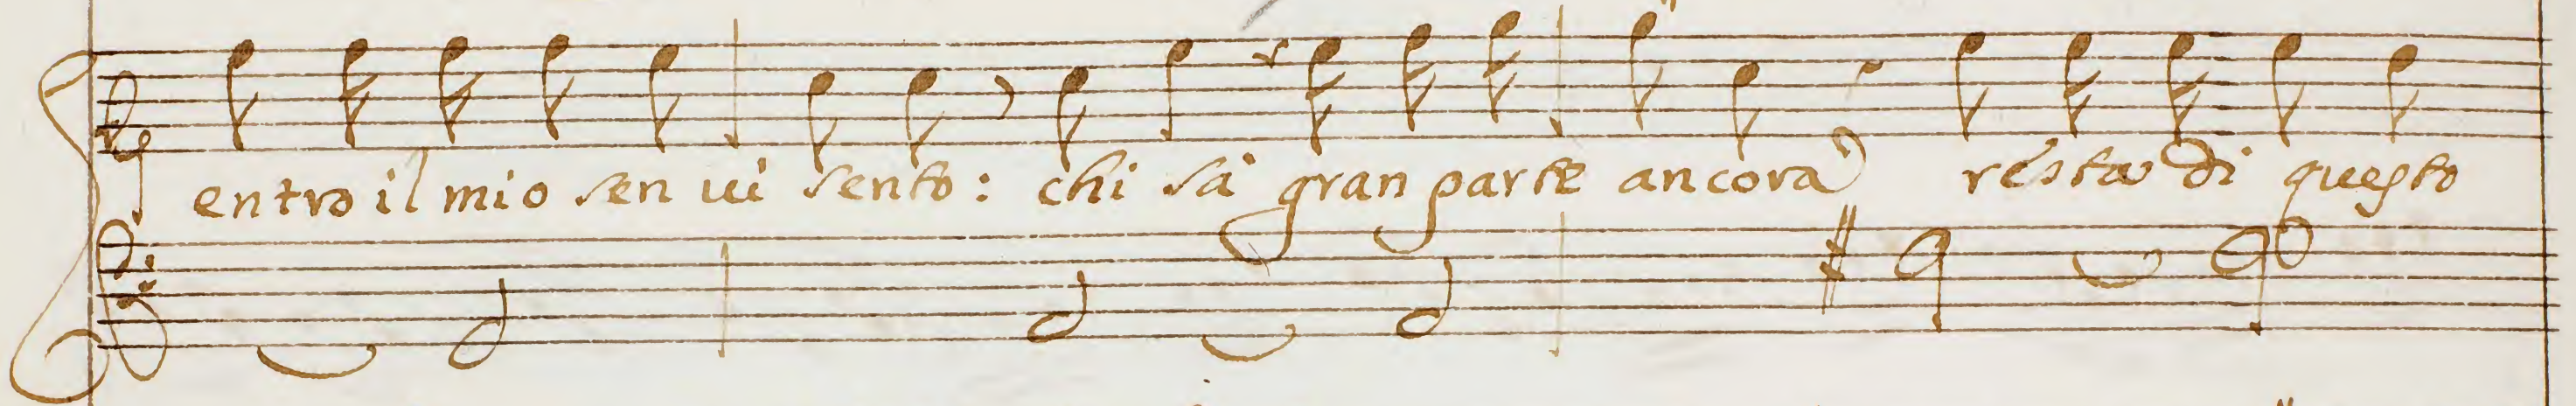 entro il mio sen ui sento: chi sà gran parte ancora resta di questo